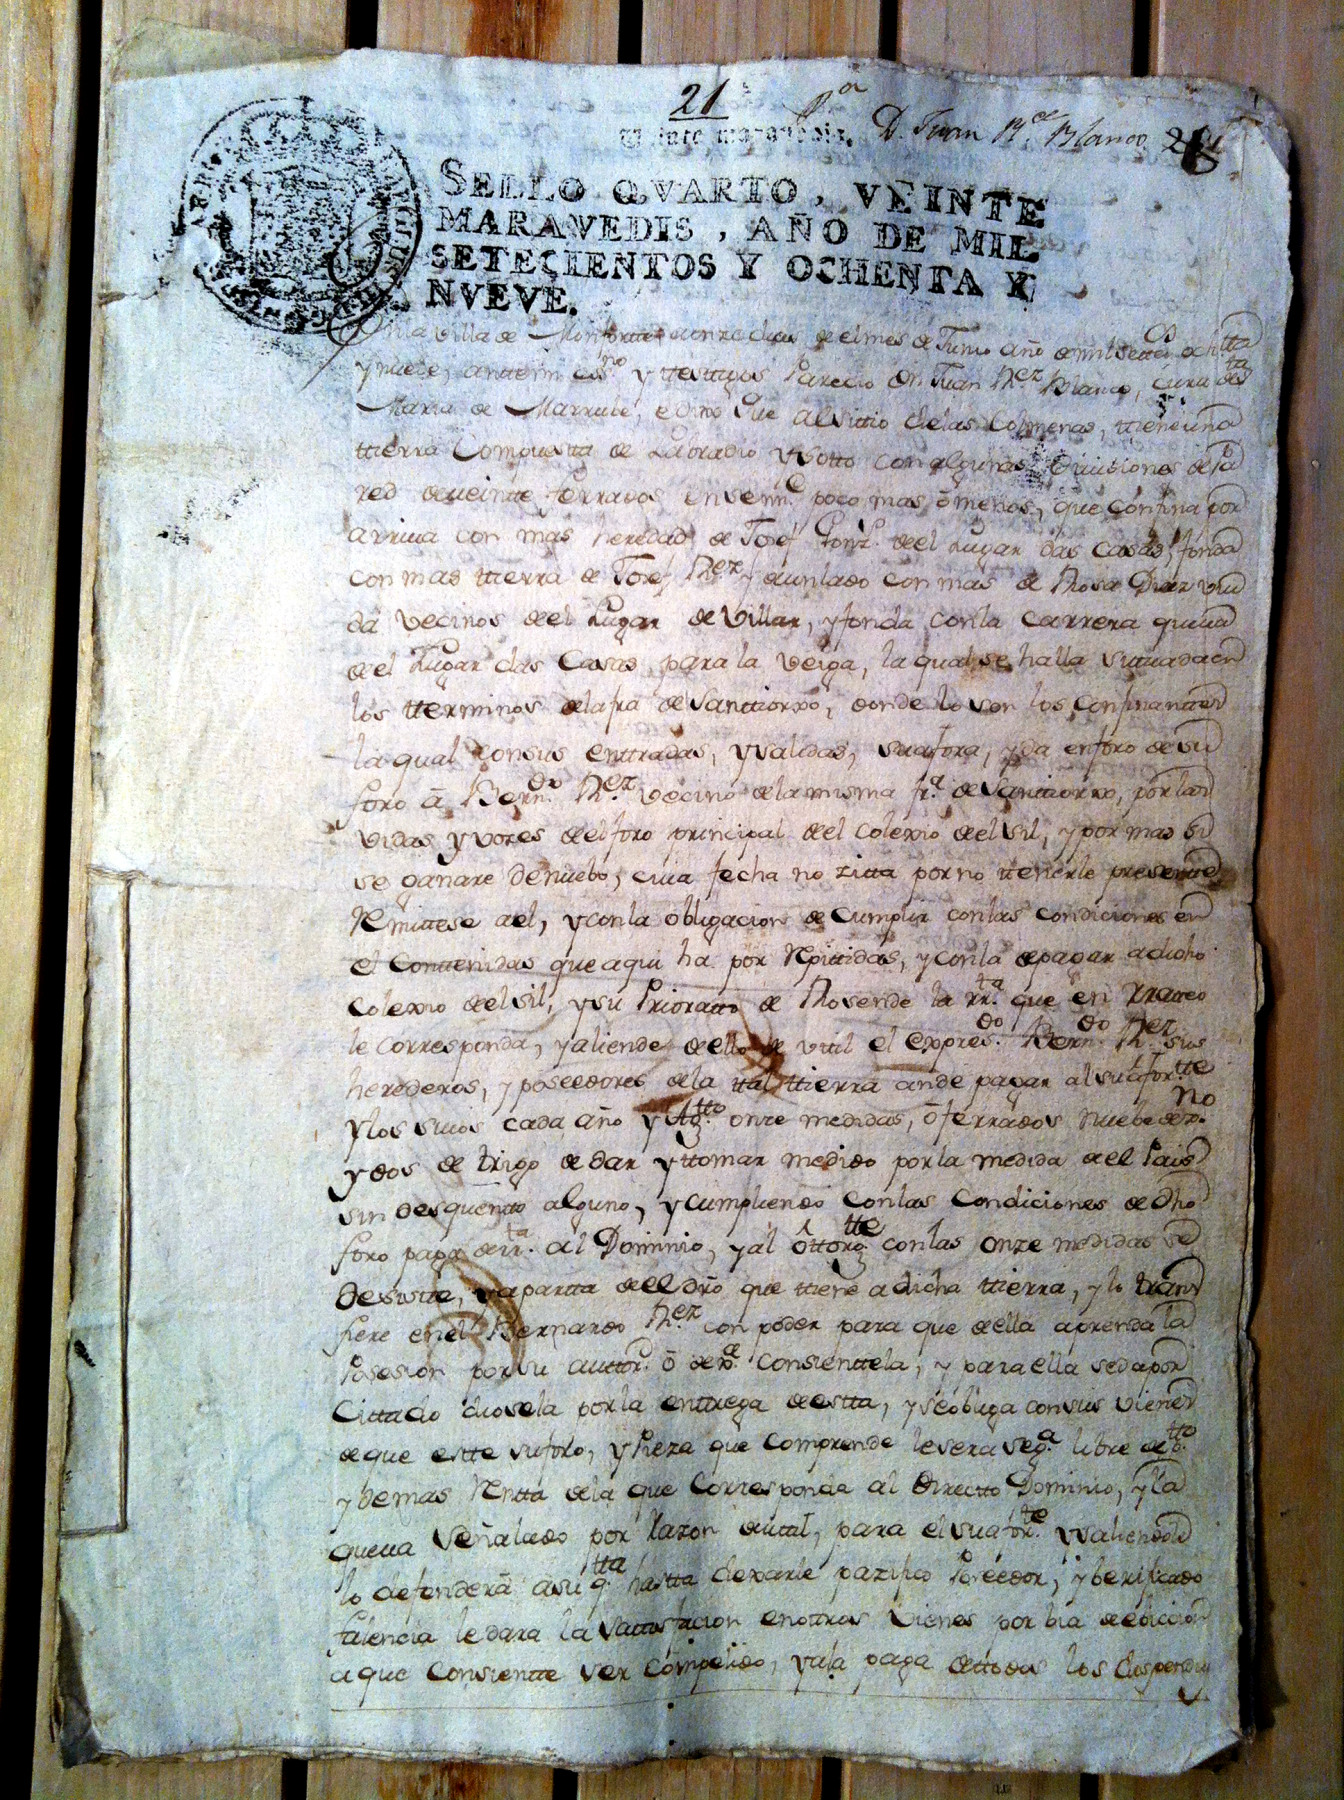 21
Pa
Veinte maravedis.
D. Juan Rz. Blanco 21
SELLO QVARTO, VEINTE
MARAVEDIS, AÑO DE MIL
SETECIENTOS Y OCHENTA Y
NVEVE.
En la Villa de Monforte a onze dias de el mes de Junio año de mil settecos. ochtta
y nueve, antte mi essno y ttesttigos Parecio Dn Juan Rez Blanco, cura de Sta
Maria de Marrube, e Dixo Que al sittio de las Colmenas, ttiene una
ttierra Compuestta de Labradio y Sotto con algunas Divisiones de Pa
red de veintte ferrados en sem.e poco mas ō menos, que confina por
arriva con mas heredad de Josef Gonz.z de el Lugar das Casas, fonda
con mas ttierra de Josef Rez y de un lado con mas de Rosa Diaz viu
da Vecinos de el Lugar de Villar, y fonda con la carrera que va
de el Lugar das Casas para la Veiga, la qual se halla situada en
los tterminos de la fra de Santtiorxo, donde lo son los Confinanttes
la qual con sus enttradas, y salidas, suafora, y da en foro de su
foro ā Bern.do Rez Vecino de la misma fr.a de Santtiorxo, por las
vidas y vozes de el foro principal de el Colexio de el Sil, y por mas si
se ganare de nuebo, cuia fecha no zitta por no ttenerle presentte
Remittese a el, y con la obligacion de cumplir con las condiciones en
el Conttenidas que aqui ha por Repittidas, y con la de pagar a dicho
Colexio de el Sil, y su Prioratto de Rosende la rr.ta que en Prateo
le corresponda, y aliende de ello de uttil el expres.do Bern.do Rez sus
herederos, y poseedores de la ttal ttierra an de pagar al suafor.tte
y los suios cada año y Ag.tto onze medidas, ō ferrados nuebe de z.no
y dos de trigo de dar y ttomar medido por la medida de el Pais
sin desquentto alguno, y cumpliendo con las Condiciones de dho
foro paga de rr.ta al Dominio, y al ōttorg.tte con las onze medidas se
Desistte, y apartta de el dro que ttiene a dicha ttierra, y lo trans
fiere en el Bernardo Rez con poder para que de ella aprenda la
Posesion por su auttor.d ō de Ju.e Consienttela, y para ella se da por
Cittado diosela por la enttrega de estta, y se obliga con sus vienes
de que estte suforo, y Pieza que comprende le sera seg.a libre de
y demas Rentta de la que Corresponda al Directto Dominio, y la
que va señalado por Razon de uttil, para el suafor.te y saliendole
lo defenderā a su q.tta hastta dexarle pazifico Poseedor, y berificado
falencia le dara la sattisfacion en ottros vienes por bia de ebiccion
a que Consientte ser Compelido, y a la paga de ttodos los dispendi